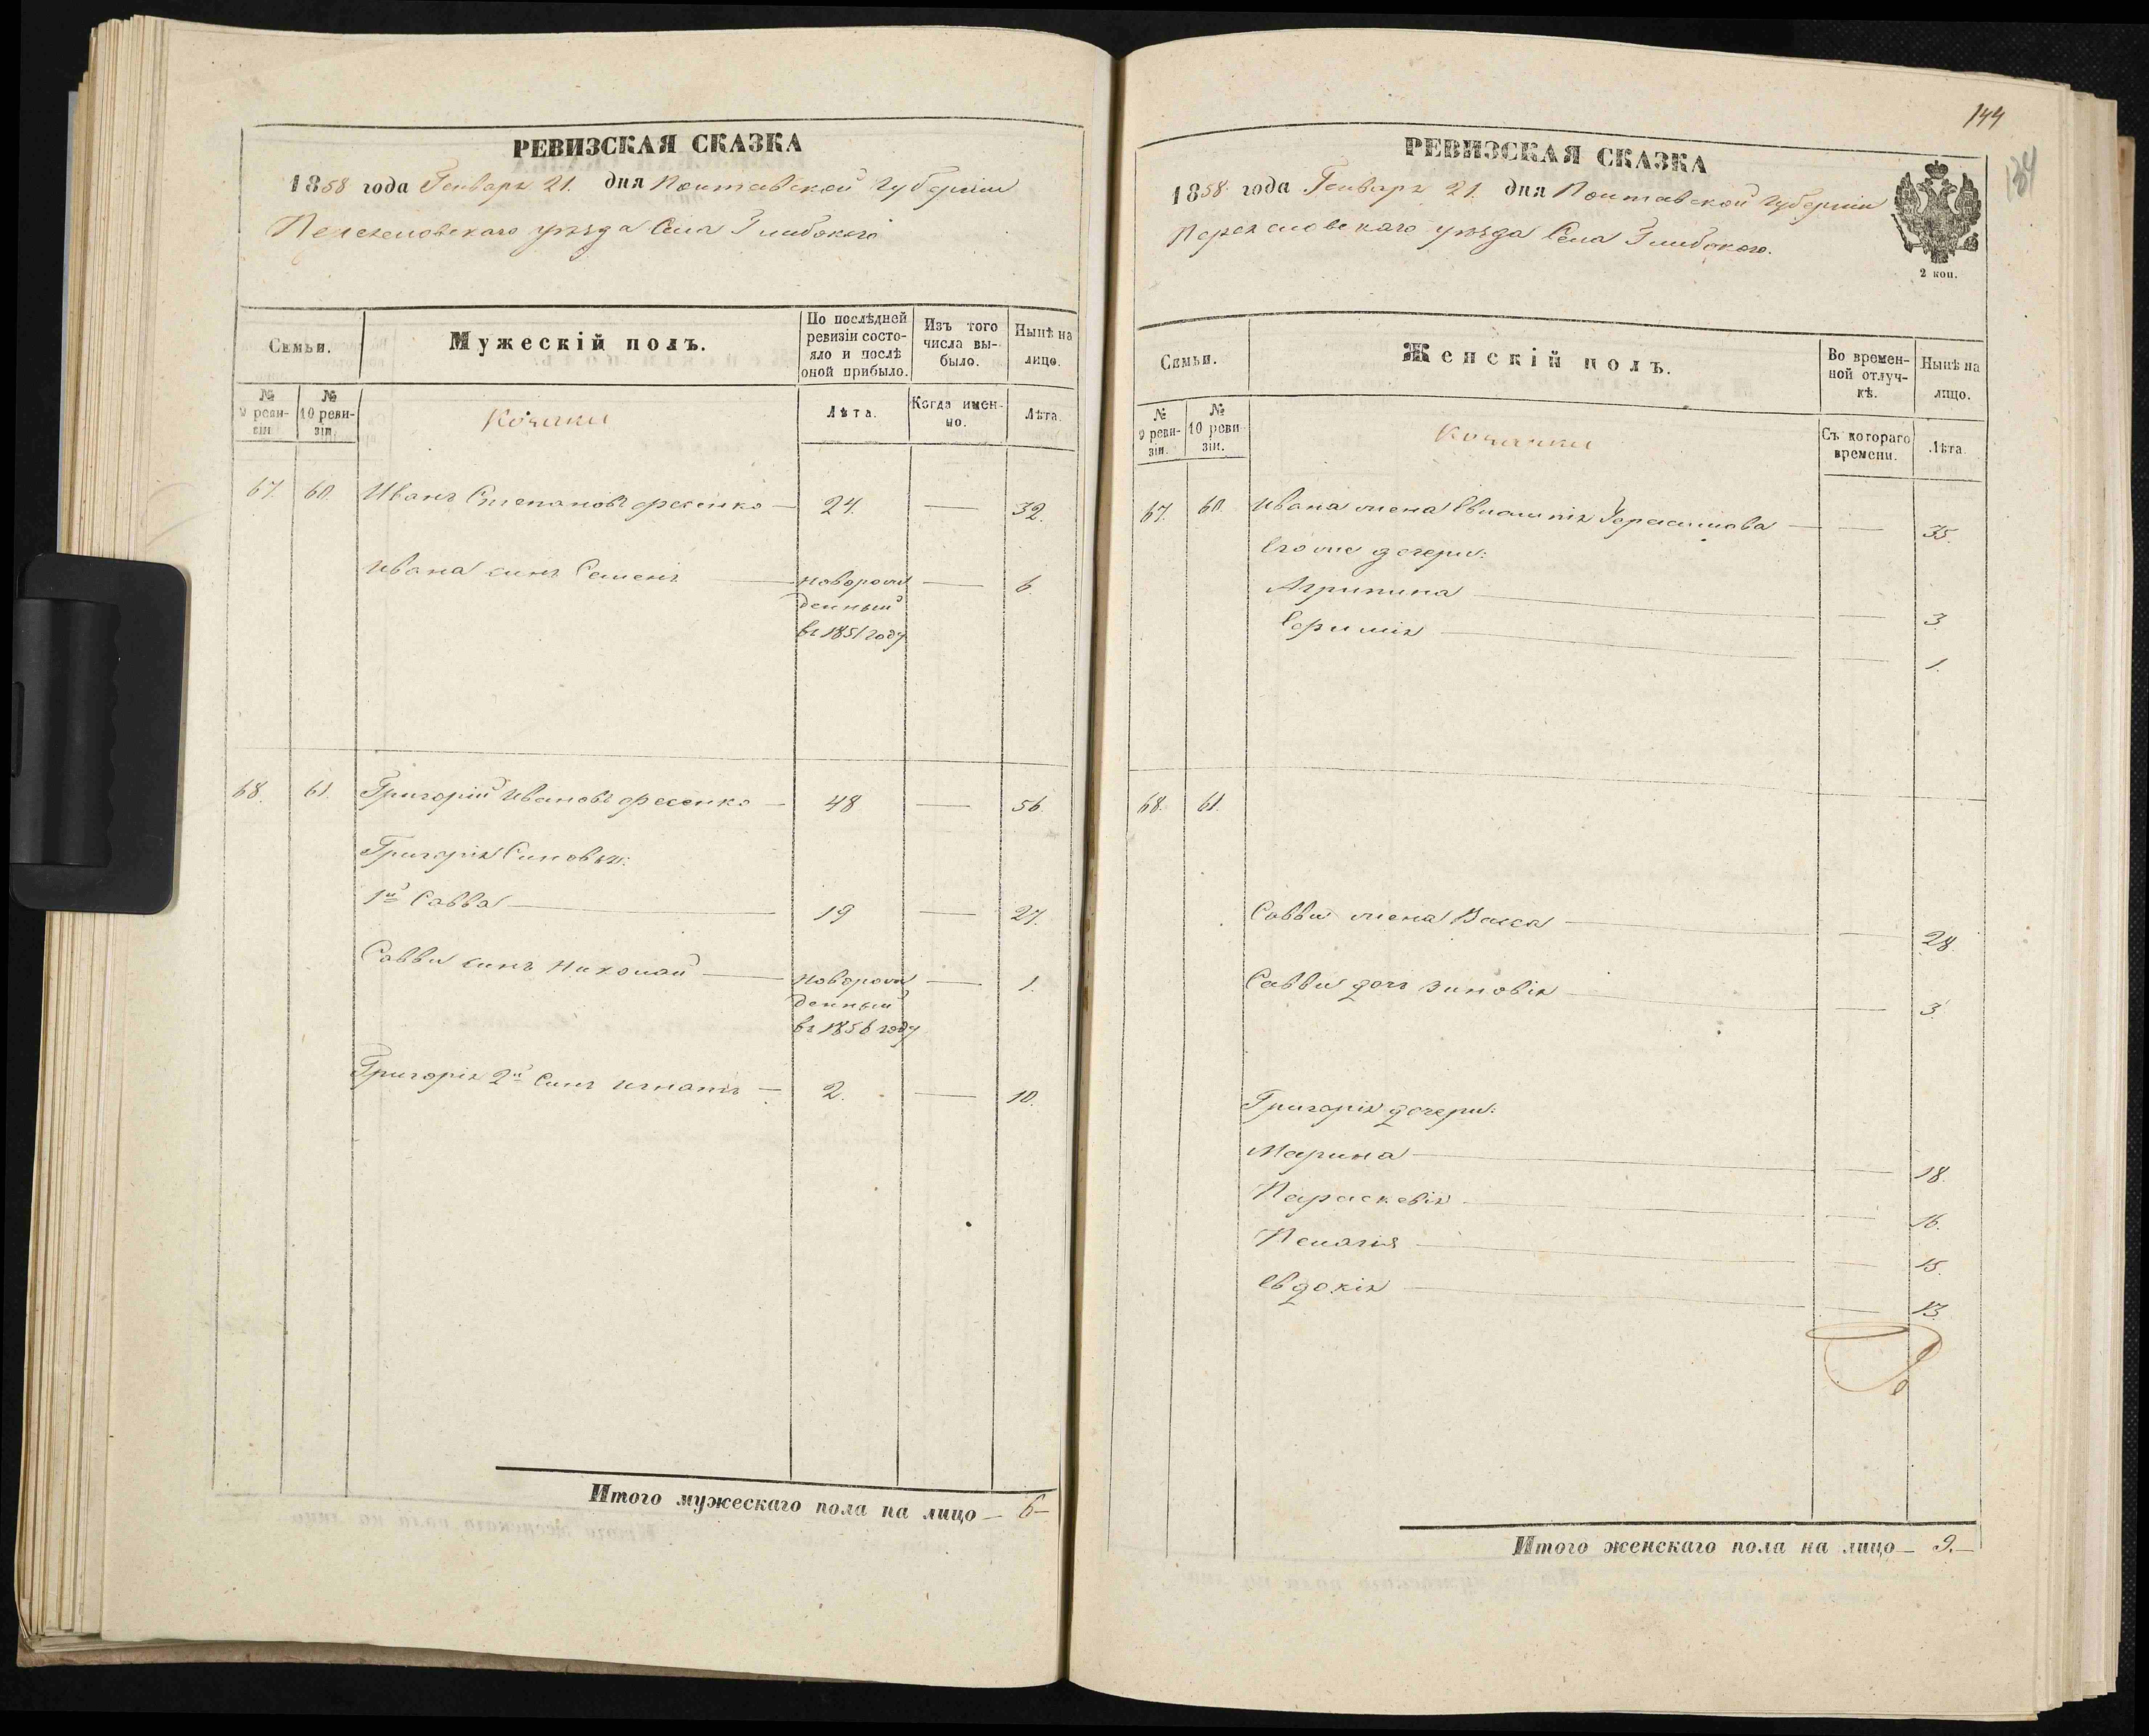 РЕВИЗСКАЯ СКАЗКА
1858 года Генваря 21. дня Полтавской Губерніи
Переяславскаго уѣзда Села Глибокого
Семьи.
Мужескій полъ.
По послѣдней ревизіи состояло и послѣ оной прибыло.
Изъ того числа выбыло.
Нынѣ на лицо.
№ 9 ревизіи
№ 10 ревизіи.
Козаки
Лѣта.
Когда именно.
Лѣта.
67. 60. Иванъ Степановъ Фесенко — 24. — 32.
Ивана синъ Семенъ — новорожденный въ 1851 году — 6.
68. 61. Григорій Ивановъ Фесенко — 48 — 56.
Григорія Синовья:
1й Савва — 19 — 27.
Савви синъ Николай — новорожденный въ 1856 году — 1.
Григорія 2й Синъ Игнатъ — 2. — 10.
Итого мужескаго пола на лицо — 6 —
144
134
РЕВИЗСКАЯ СКАЗКА
1858 года Генваря 21. дня Полтавской Губерніи
Переяславскаго уѣзда Села Глибокого.
2 коп.
Семьи.
Женскій полъ.
Во временной отлучкѣ.
Нынѣ на лицо.
№ 9 ревизіи.
№ 10 ревизіи.
Козачки
Съ котораго времени.
Лѣта.
67. 60. Ивана жена Евдокія Герасимова — — 35.
Его же дочери:
Агрипина — — 3.
Ефимія — — 1.
68. 61.
Савви жена Васса — — 28.
Савви дочь Зиновія — — 3.
Григорія дочери:
Марина — — 18.
Параскевія — — 16.
Пелагія — — 15.
Евдокія — — 13.
Итого женскаго пола на лицо — 9. —